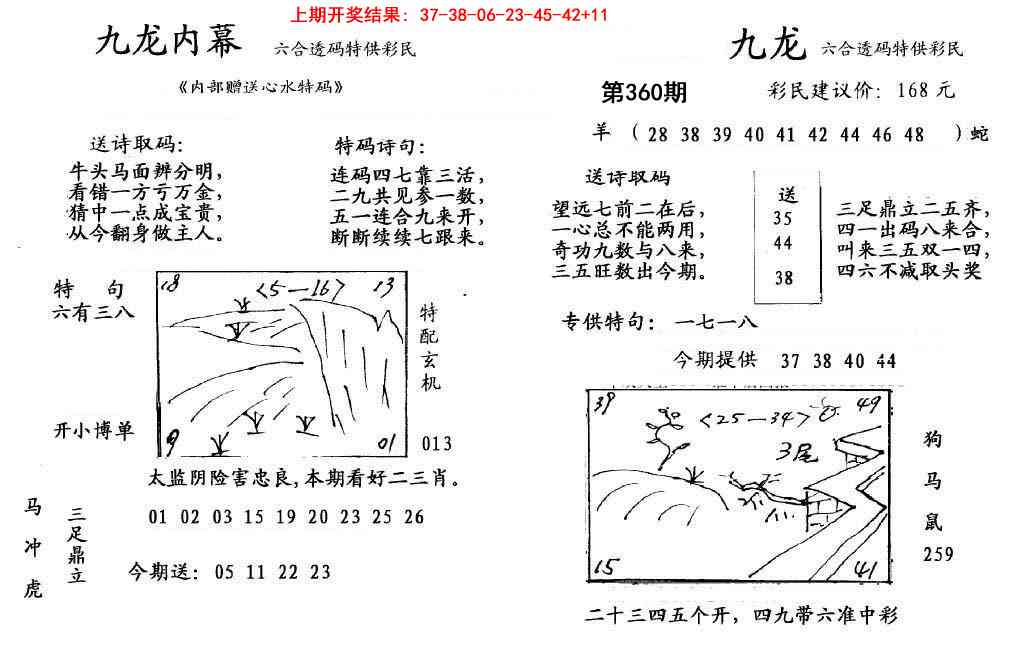 上期开奖结果：37-38-06-23-45-42+11
九龙内幕 六合透码特供彩民
《内部赠送心水特码》
送诗取码：
牛头马面辨分明，
看错一方亏万金，
猜中一点成宝贵，
从今翻身做主人。
特码诗句：
连码四七靠三活，
二九共见参一数，
五一连合九来开，
断断续续七跟来。
特 句
六有三八
开小博单
18 <5—16> 13
9 01
特配玄机
013
太监阴险害忠良，本期看好二三肖。
马冲虎
三足鼎立
01 02 03 15 19 20 23 25 26
今期送：05 11 22 23
九龙 六合透码特供彩民
第360期 彩民建议价：168元
羊（28 38 39 40 41 42 44 46 48 ）蛇
送诗取码
望远七前二在后，
一心总不能两用，
奇功九数与八来，
三五旺数出今期。
送
35
44
38
三足鼎立二五齐，
四一出码八来合，
叫来三五双一四，
四六不减取头奖
专供特句：一七一八
今期提供 37 38 40 44
39 <25—34> 49
3尾
15 41
狗
马
鼠
259
二十三四五个开，四九带六准中彩